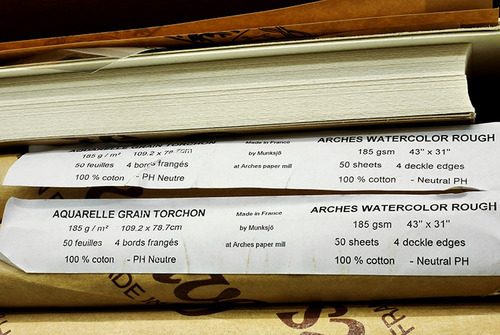 AQUARELLE GRAIN TORCHON Made in France ARCHES WATERCOLOR ROUGH
185 g / m² 109.2 x 78.7cm by Munksjö 185 gsm 43" x 31"
50 feuilles 4 bords frangés at Arches paper mill 50 sheets 4 deckle edges
100 % coton - PH Neutre 100% cotton - Neutral PH
AQUARELLE GRAIN TORCHON Made in France ARCHES WATERCOLOR ROUGH
185 g / m² 109.2 x 78.7cm by Munksjö 185 gsm 43" x 31"
50 feuilles 4 bords frangés at Arches paper mill 50 sheets 4 deckle edges
100 % coton - PH Neutre 100% cotton - Neutral PH